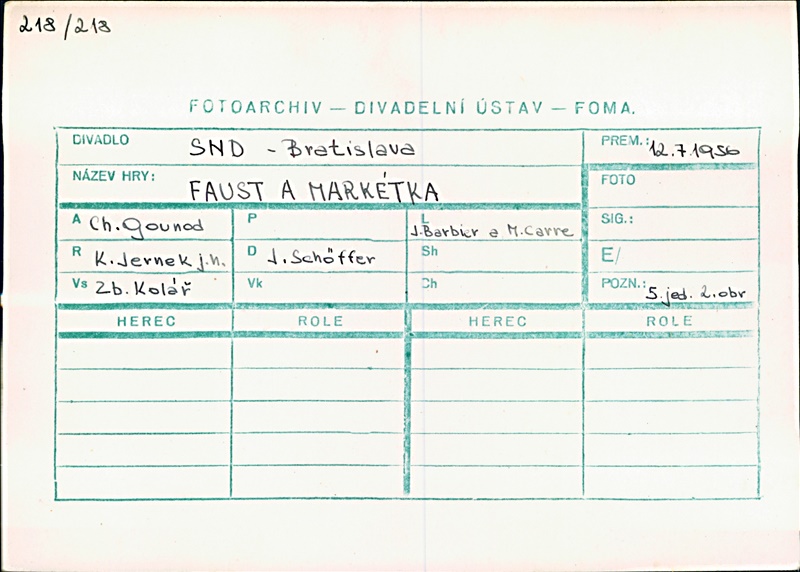 218/213
FOTOARCHIV — DIVADELNÍ ÚSTAV — FOMA.
DIVADLO SND - Bratislava PREM.: 12.7.1956
NÁZEV HRY: FAUST A MARKÉTKA FOTO
A Ch. Gounod P L J.Barbier a M.Carre SIG.:
R K. Jernek j.h. D J. Schöffer Sh E/
Vs Zb. Kolář Vk Ch POZN.: 5.jed. 2.obr
HEREC ROLE HEREC ROLE